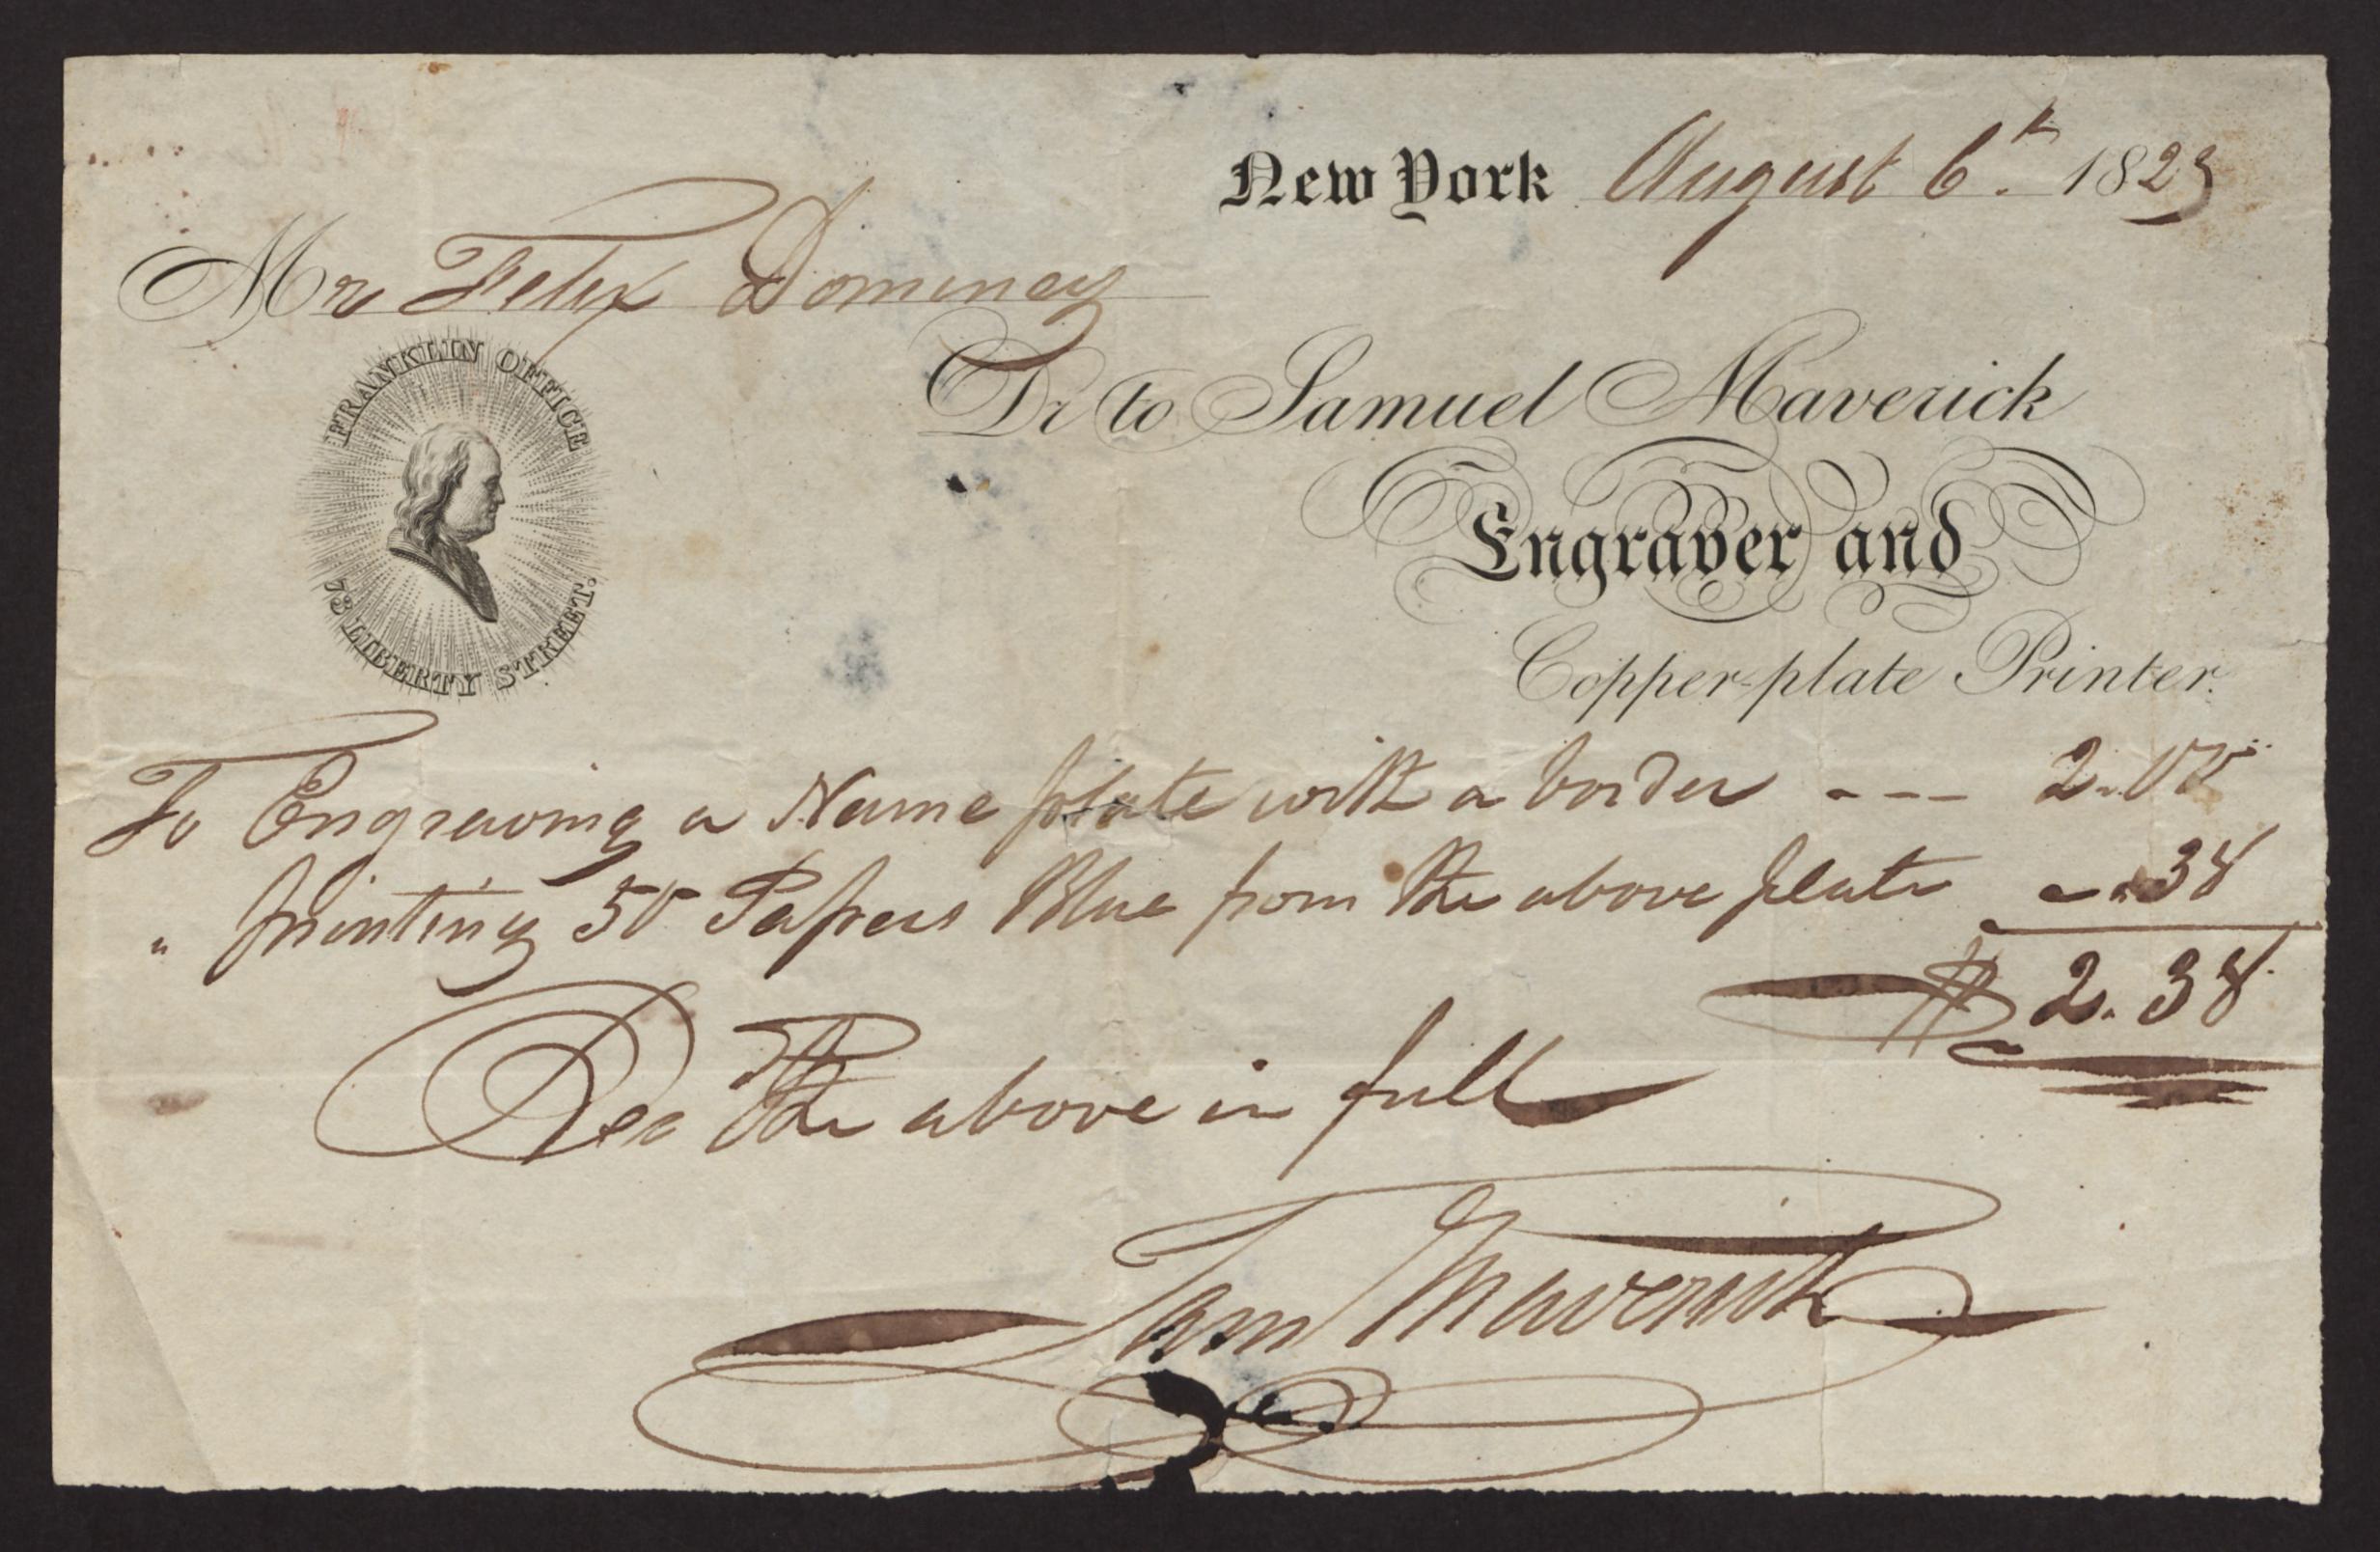 New York August 6th. 1823
Mr Felix Dominey
FRANKLIN OFFICE
73 LIBERTY STREET.
Dr to Samuel Maverick
Engraver and
Copper-plate Printer.
To Engraving a Name plate with a border --- 2.00
" printing 50 Papers Blue from the above plate - "38
$ 2.38
Rec the above in full
Sam Maverick